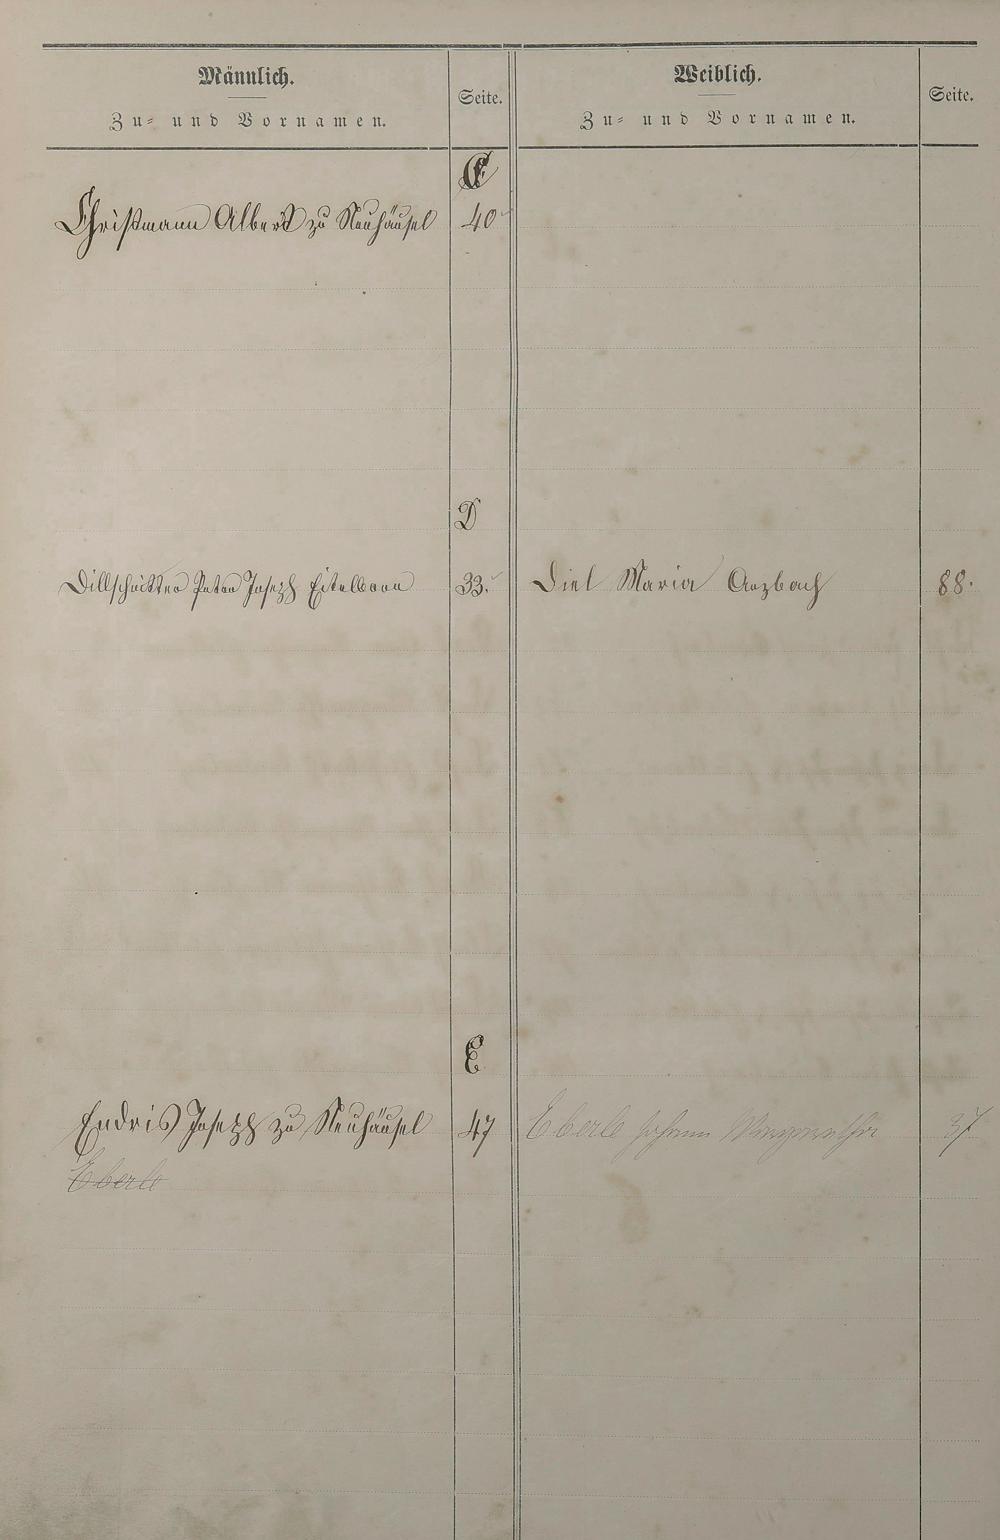 Männlich.
Zu- und Vornamen.
Seite.
Weiblich.
Zu- und Vornamen.
Seite.
C
Christmann Albert zu Neuhäusel 40
D
Dillschnitter Peter Joseph Eitelborn 33.
Diel Maria Arzbach 88.
E
Endris Joseph zu Neuhäusel 47
Eberle Johann 37
Eberle